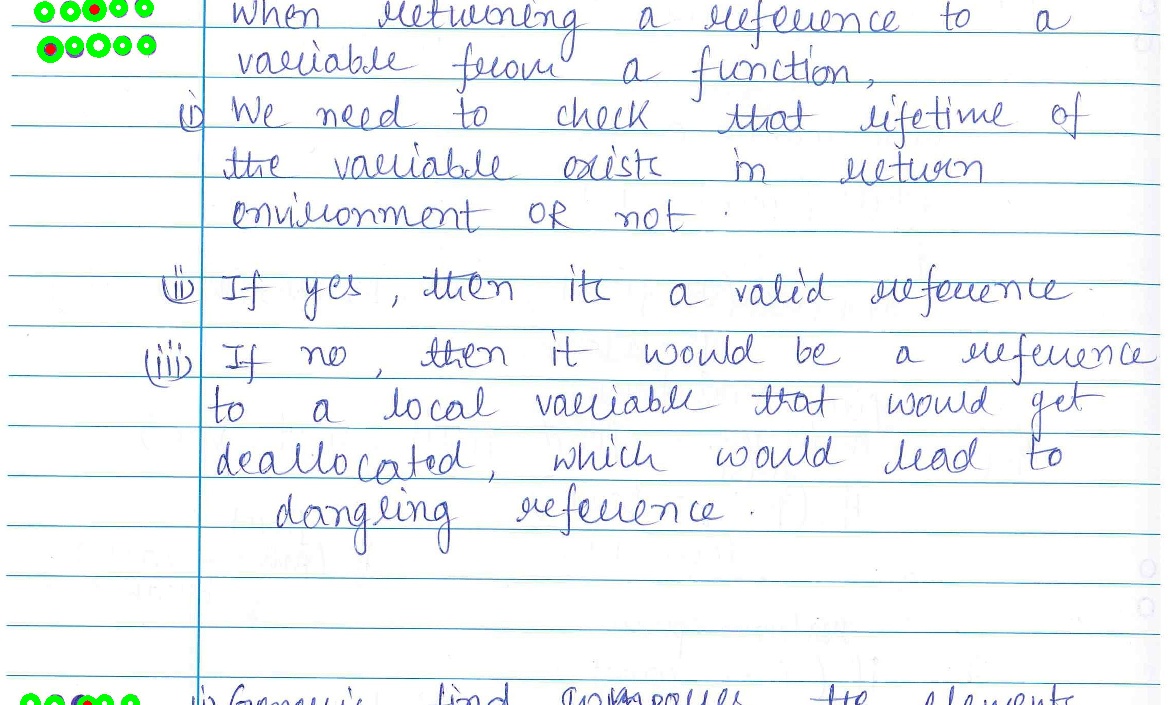 When returning a reference to a
variable from a function,
(i) We need to check that lifetime of
the variable exists in return
environment OR not.
(ii) If yes, then its a valid reference.
(iii) If no, then it would be a reference
to a local variable that would get
deallocated, which would lead to
dangling reference.
find the elements